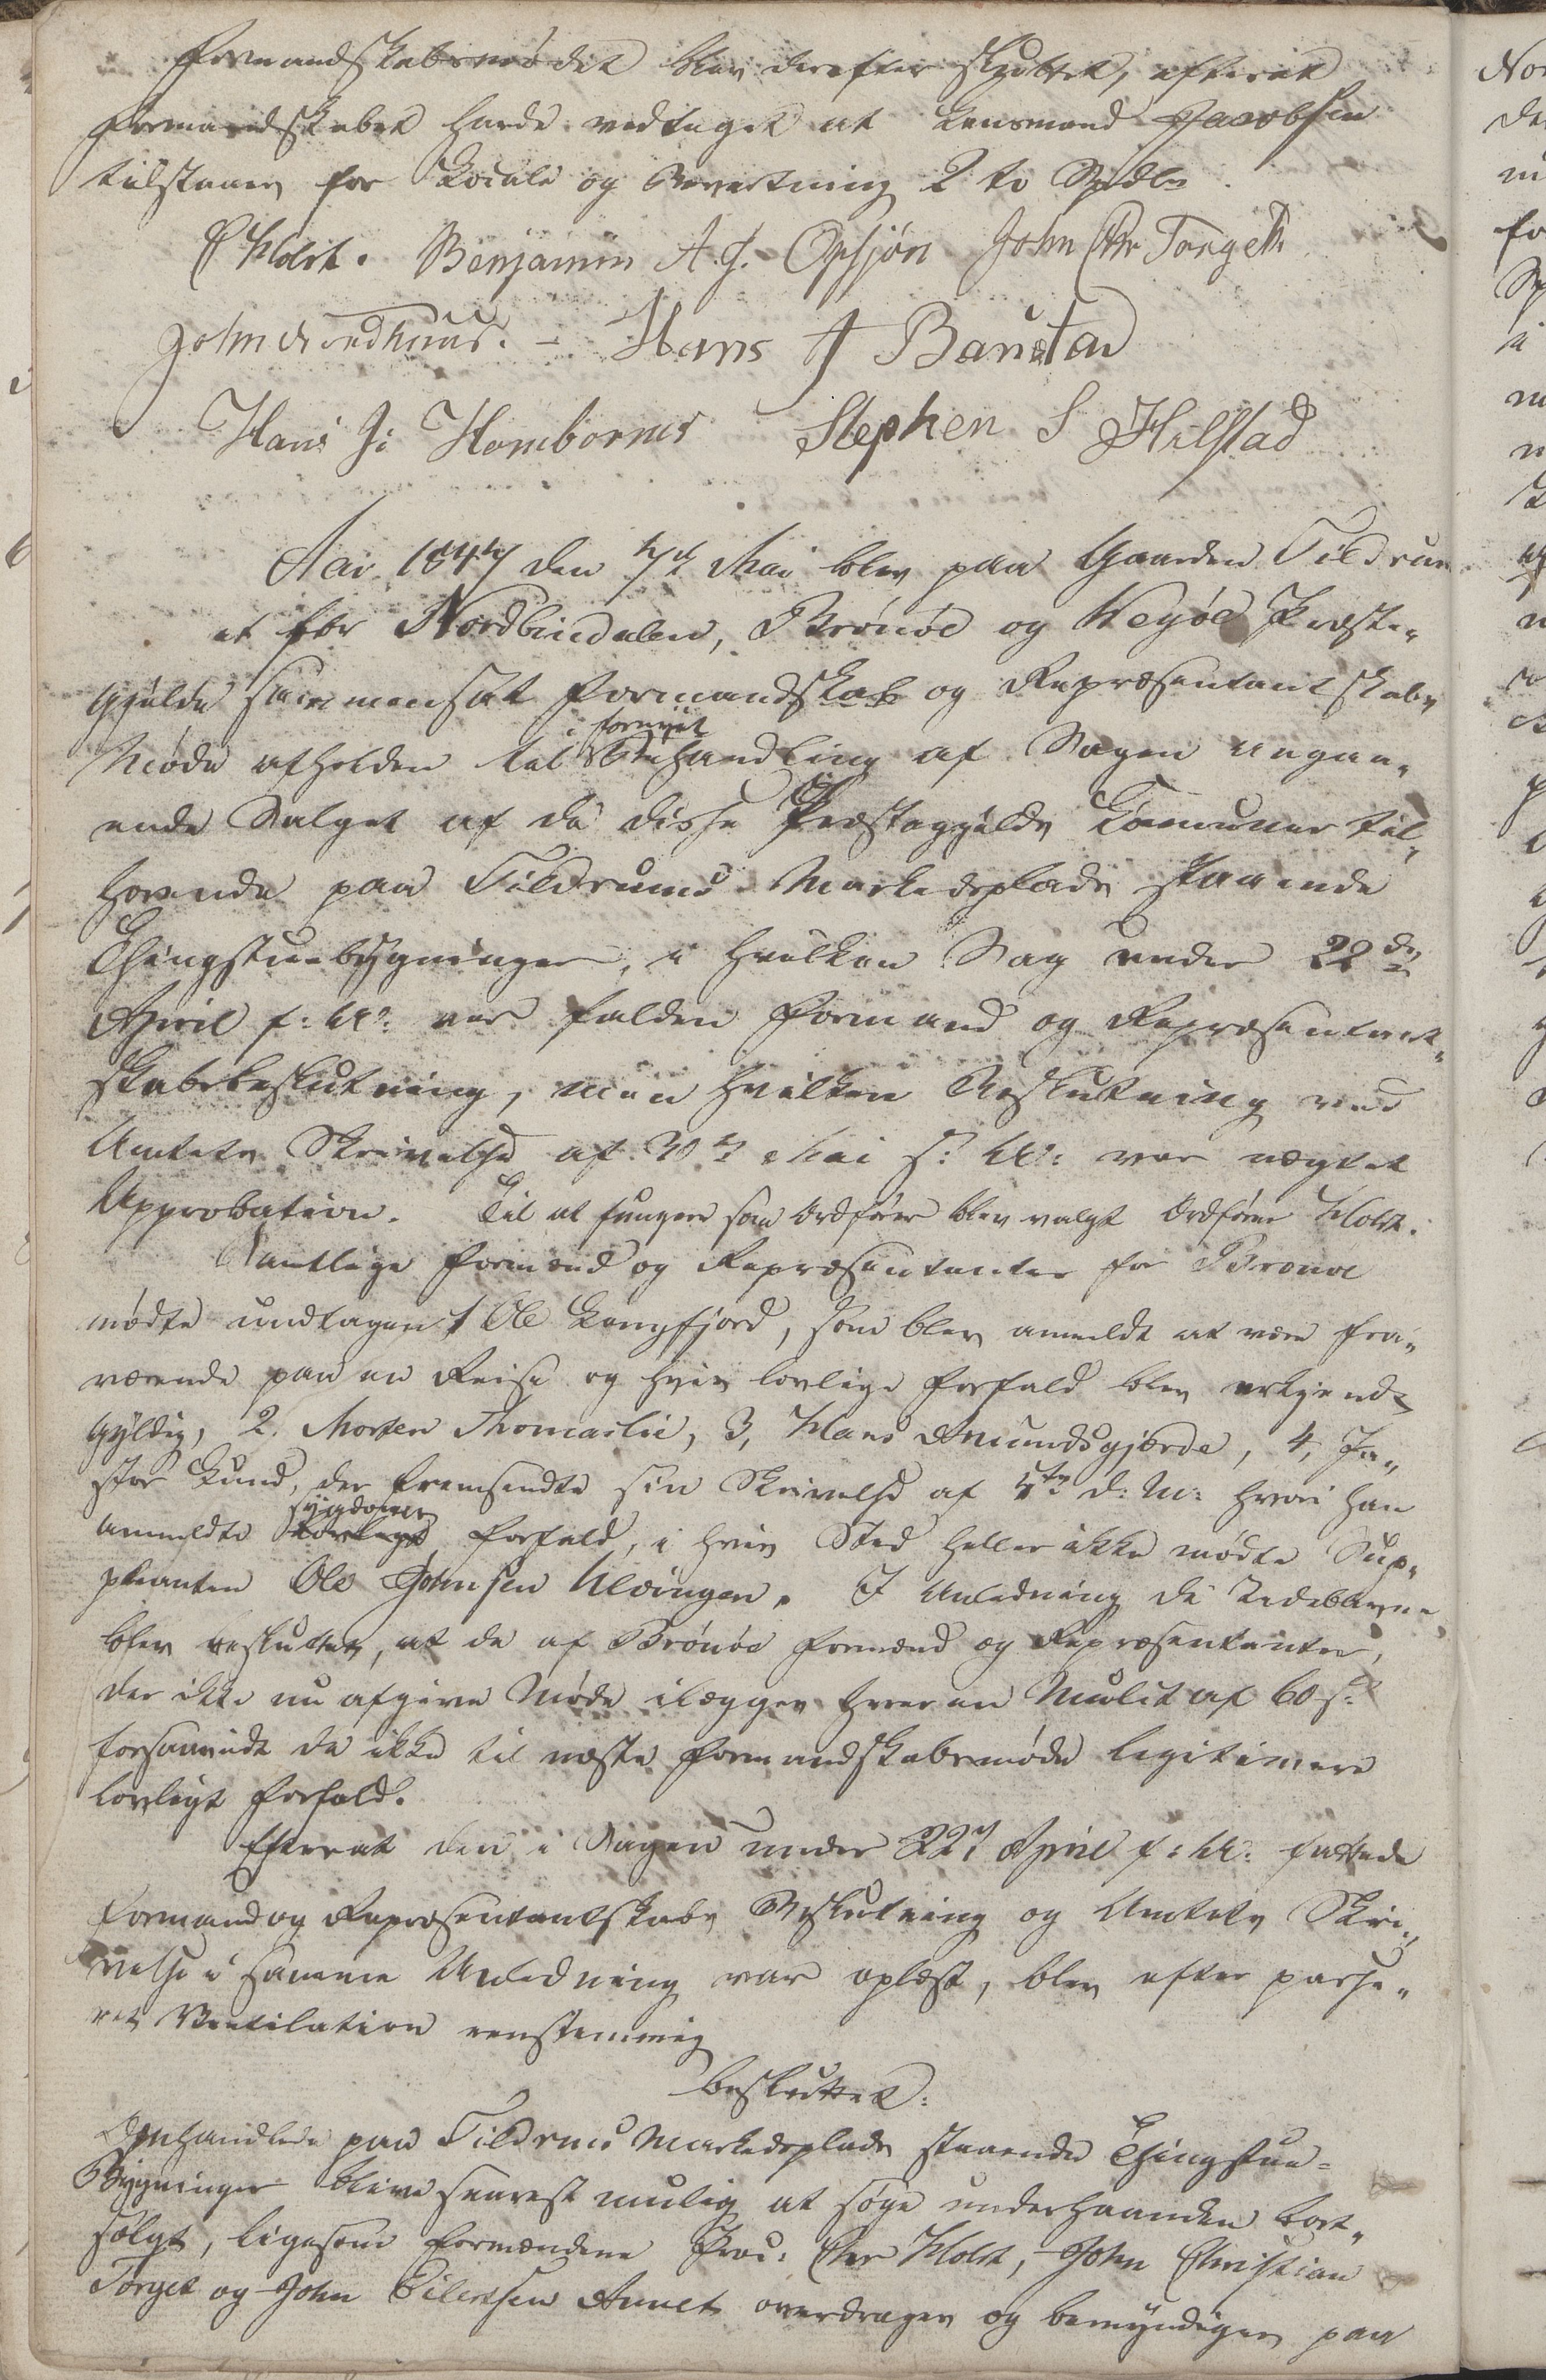 Formandskabsmødet blev derefter sluttet, efterat
Formandskabet havde vedtaget at Lensmand Jacobsen
tilstaaes for Locale og Bevertning 2 to Spdlr
Holst. Benjamin A. J. Opsjøn John Chr Torgett
John Sundhuus. - Hans J Barstad
Hans Js Hombornes Stephen S Hilstad
Aar 1847 den 7de Mai blev paa Gaarden Tildrum
et for Nordbindalen, Brønøe og Wegøe Præste-
gjelde sammensat Formandskab og Repræsentantskabs
Møde afholden til fornyet Behandling af Sagen angaa-
ende Salget af de disse Præstegjelds Communer til-
horende paa Tildrums Markedsplads staaende
Thingstuebygninger, i hvilken Sag under 22de
April f: A: var falden Formand og Repræsentant-
skabsbeslutning, men hvilken Beslutning ved
Amtets Skrivelse af 30te Mai s: A: var nægtet
Approbation. Til at fungere som Ordfører blev valgt Ordfører Holst.
Samtlige Formænd og Repræsentanter for Brønøe
mødte undtagen 1 Ole Langfjord, som blev anmeldt at være fra-
værende paa en Reise og hvis lovlige Forfald blev erkjendt
gyldig, 2. Morten Thomaslie, 3, Hans Amundsgjerde, 4, Pa-
stor Lund, der fremsendte sin Skrivelse af 5te d: M: hvori han
anmeldte sygdoms Forfald, i hvis Sted heller ikke mødte Sup-
pleanten Ole Johnsen Ulvingen. I Anledning de Udeblevne
blev besluttet, at de af Brønøe Formænd og Repræsentanter,
der ikke nu afgive Møde ilægges hver en Mulct af 60 s:
forsaavidt de ikke til næste Formandskabsmøde legitimere
lovligt Forfald.
Efterat den i Sagen under 22de April f: A: fattede
Formand og Repræsentantskabs Beslutning og Amtets Skri-
velse i samme Anledning var oplæst, blev efter passe-
ret Ventilation eenstemmig
besluttet:
Omhandlede paa Tildrums Markedsplads staaende Thingstue-
Bygninger blive snarest mulig at søge underhaanden bort-
solgt, ligesom Formændene Holst, John Christian
Torget og John Eilertsen overdrages og bemyndiges paa